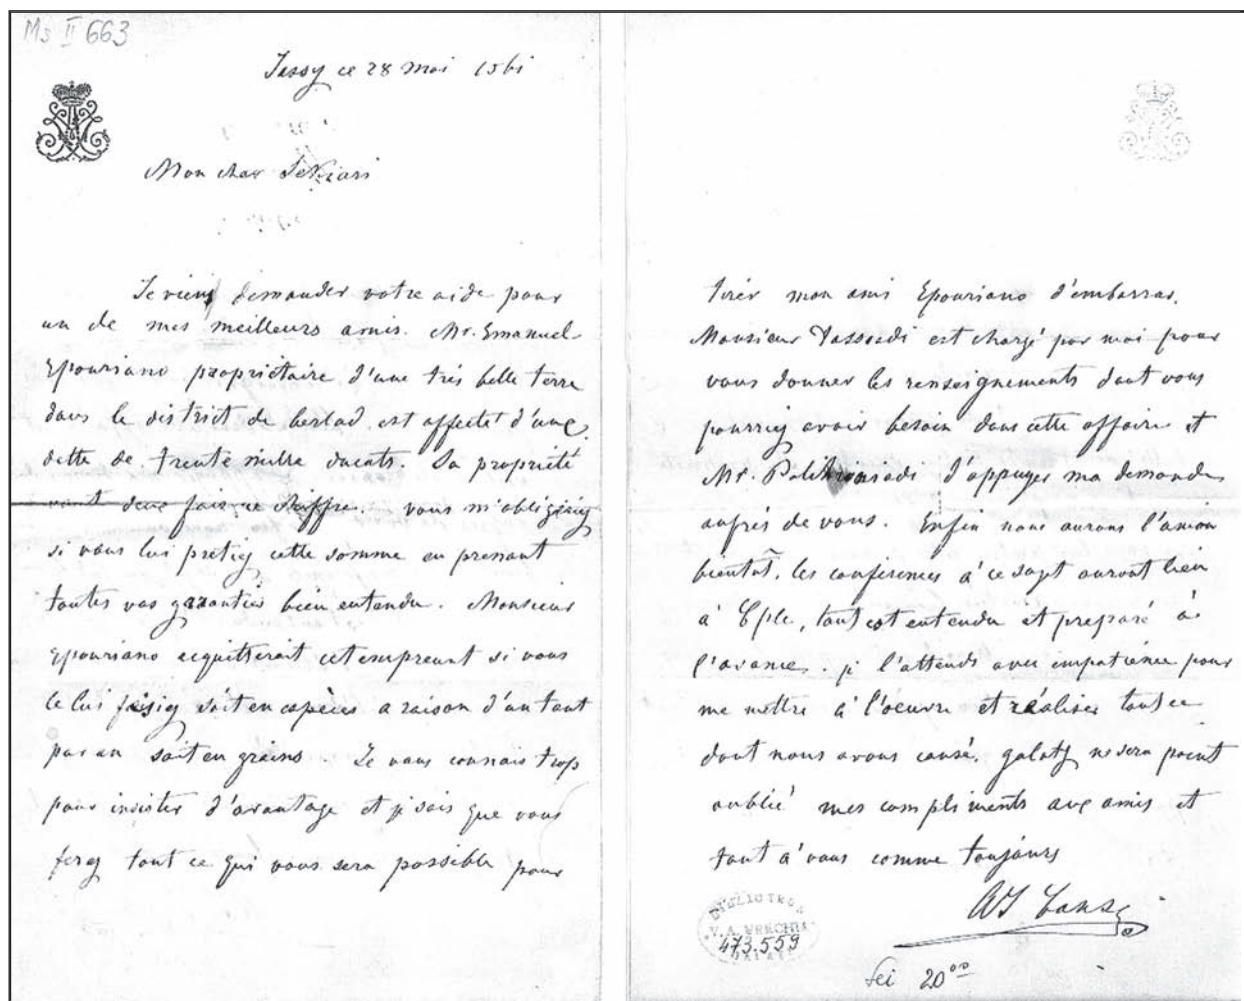 Ms II 663
Jassy ce 28 mai 1861
Mon cher Sekiari
Je viens demander votre aide pour
un de mes meilleurs amis. Mr. Emanuel
Epouriano propriétaire d'une trés belle terre
dans le district de berlad est affecté d'une
dette de trente mille ducats. Sa propriété
vaut deux fois ce chiffre. vous m'obligiriez
si vous lui pretiez cette somme en prenant
toutes vos garanties bien entendu. Monsieur
Epouriano acquitterait cet emprunt si vous
le lui faisiez soit en espèces a raison d'un tant
par an soit en grains. Je vous connais trop
pour insister d'avantage et je sais que vous
ferez tout ce qui vous sera possible pour
tirér mon ami Epouriano d'embarras.
Monsieur est chargé par moi pour
vous donner les renseignements dont vous
pourriez avoir besoin dans cette affaire et
Mr. d'appuyer ma demande
auprés de vous. Enfin nous aurons l'union
bientot, les conferences à ce sujet auront lieu
à Cple, tout est entendu et preparé à
l'avance. je l'attends avec impatience pour
me mettre à l'oeuvre et réaliser tout ce
dont nous avons causé. galatz ne sera point
oublié mes compliments aux amis et
tout à vous comme toujours
BIBLIOTECA
V. A. URECHIA
473.559
GALATI
Lei 20⁰⁰